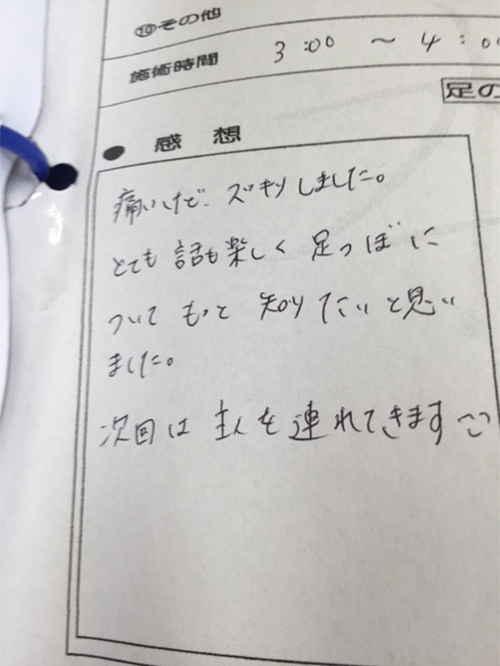 ⑩その他
施術時間 3:00 ~ 4:00
足の
● 感想
痛いけど、スッキリしました。
とても 話も楽しく 足つぼに
ついて もっと 知りたいと思い
ました。
次回は 主人を連れてきます